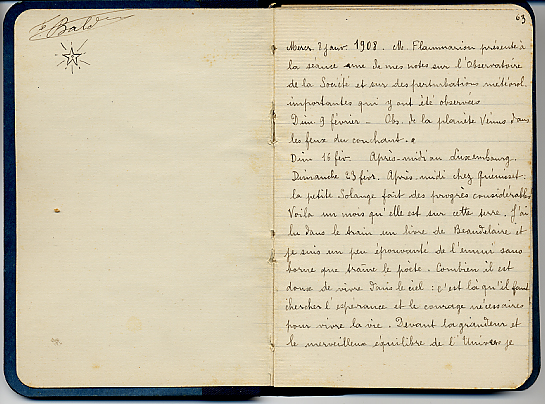 F. Baldet
63
Mercr. 8 janv. 1908. M. Flammarion présente à
la séance une de mes notes sur l'Observatoire
de la Société et sur des perturbations météorol.
importantes qui y ont été observées
Dim 9 février - Obs. de la planète Vénus dans
les feux du couchant.
Dim 16 fév. Après-midi au Luxembourg.
Dimanche 23 févr. Après-midi chez Quénisset.
la petite Solange fait des progrès considérables
Voilà un mois qu'elle est sur cette terre. J'ai
lu dans le train un livre de Beaudelaire et
je suis un peu épouvanté de l'ennui sans
borne que traîne le poète. Combien il est
doux de vivre dans le ciel : c'est là qu'il faut
chercher l'espérance et le courage nécessaires
pour vivre la vie. Devant la grandeur et
le merveilleux équilibre de l'Univers je